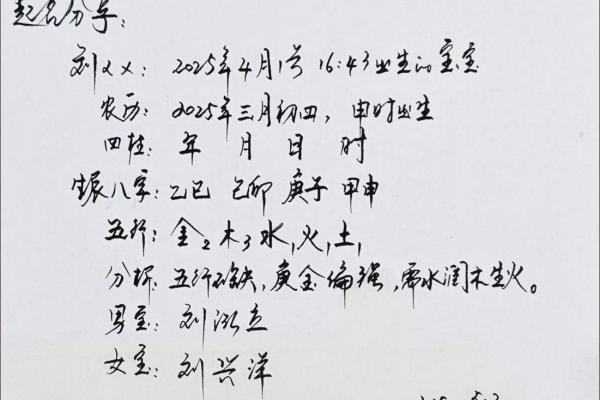 起名分享:
刘××: 2025年4月1号 16:43出生的宝宝
农历: 2025年三月初四, 申时出生
四柱: 年 月 日 时
生辰八字: 乙巳 己卯 庚子 甲申
五行: 金2木3水1火1土1
分析: 五行不缺, 庚金偏强, 需水润木生火。
男宝: 刘泓立
女宝: 刘兴洋